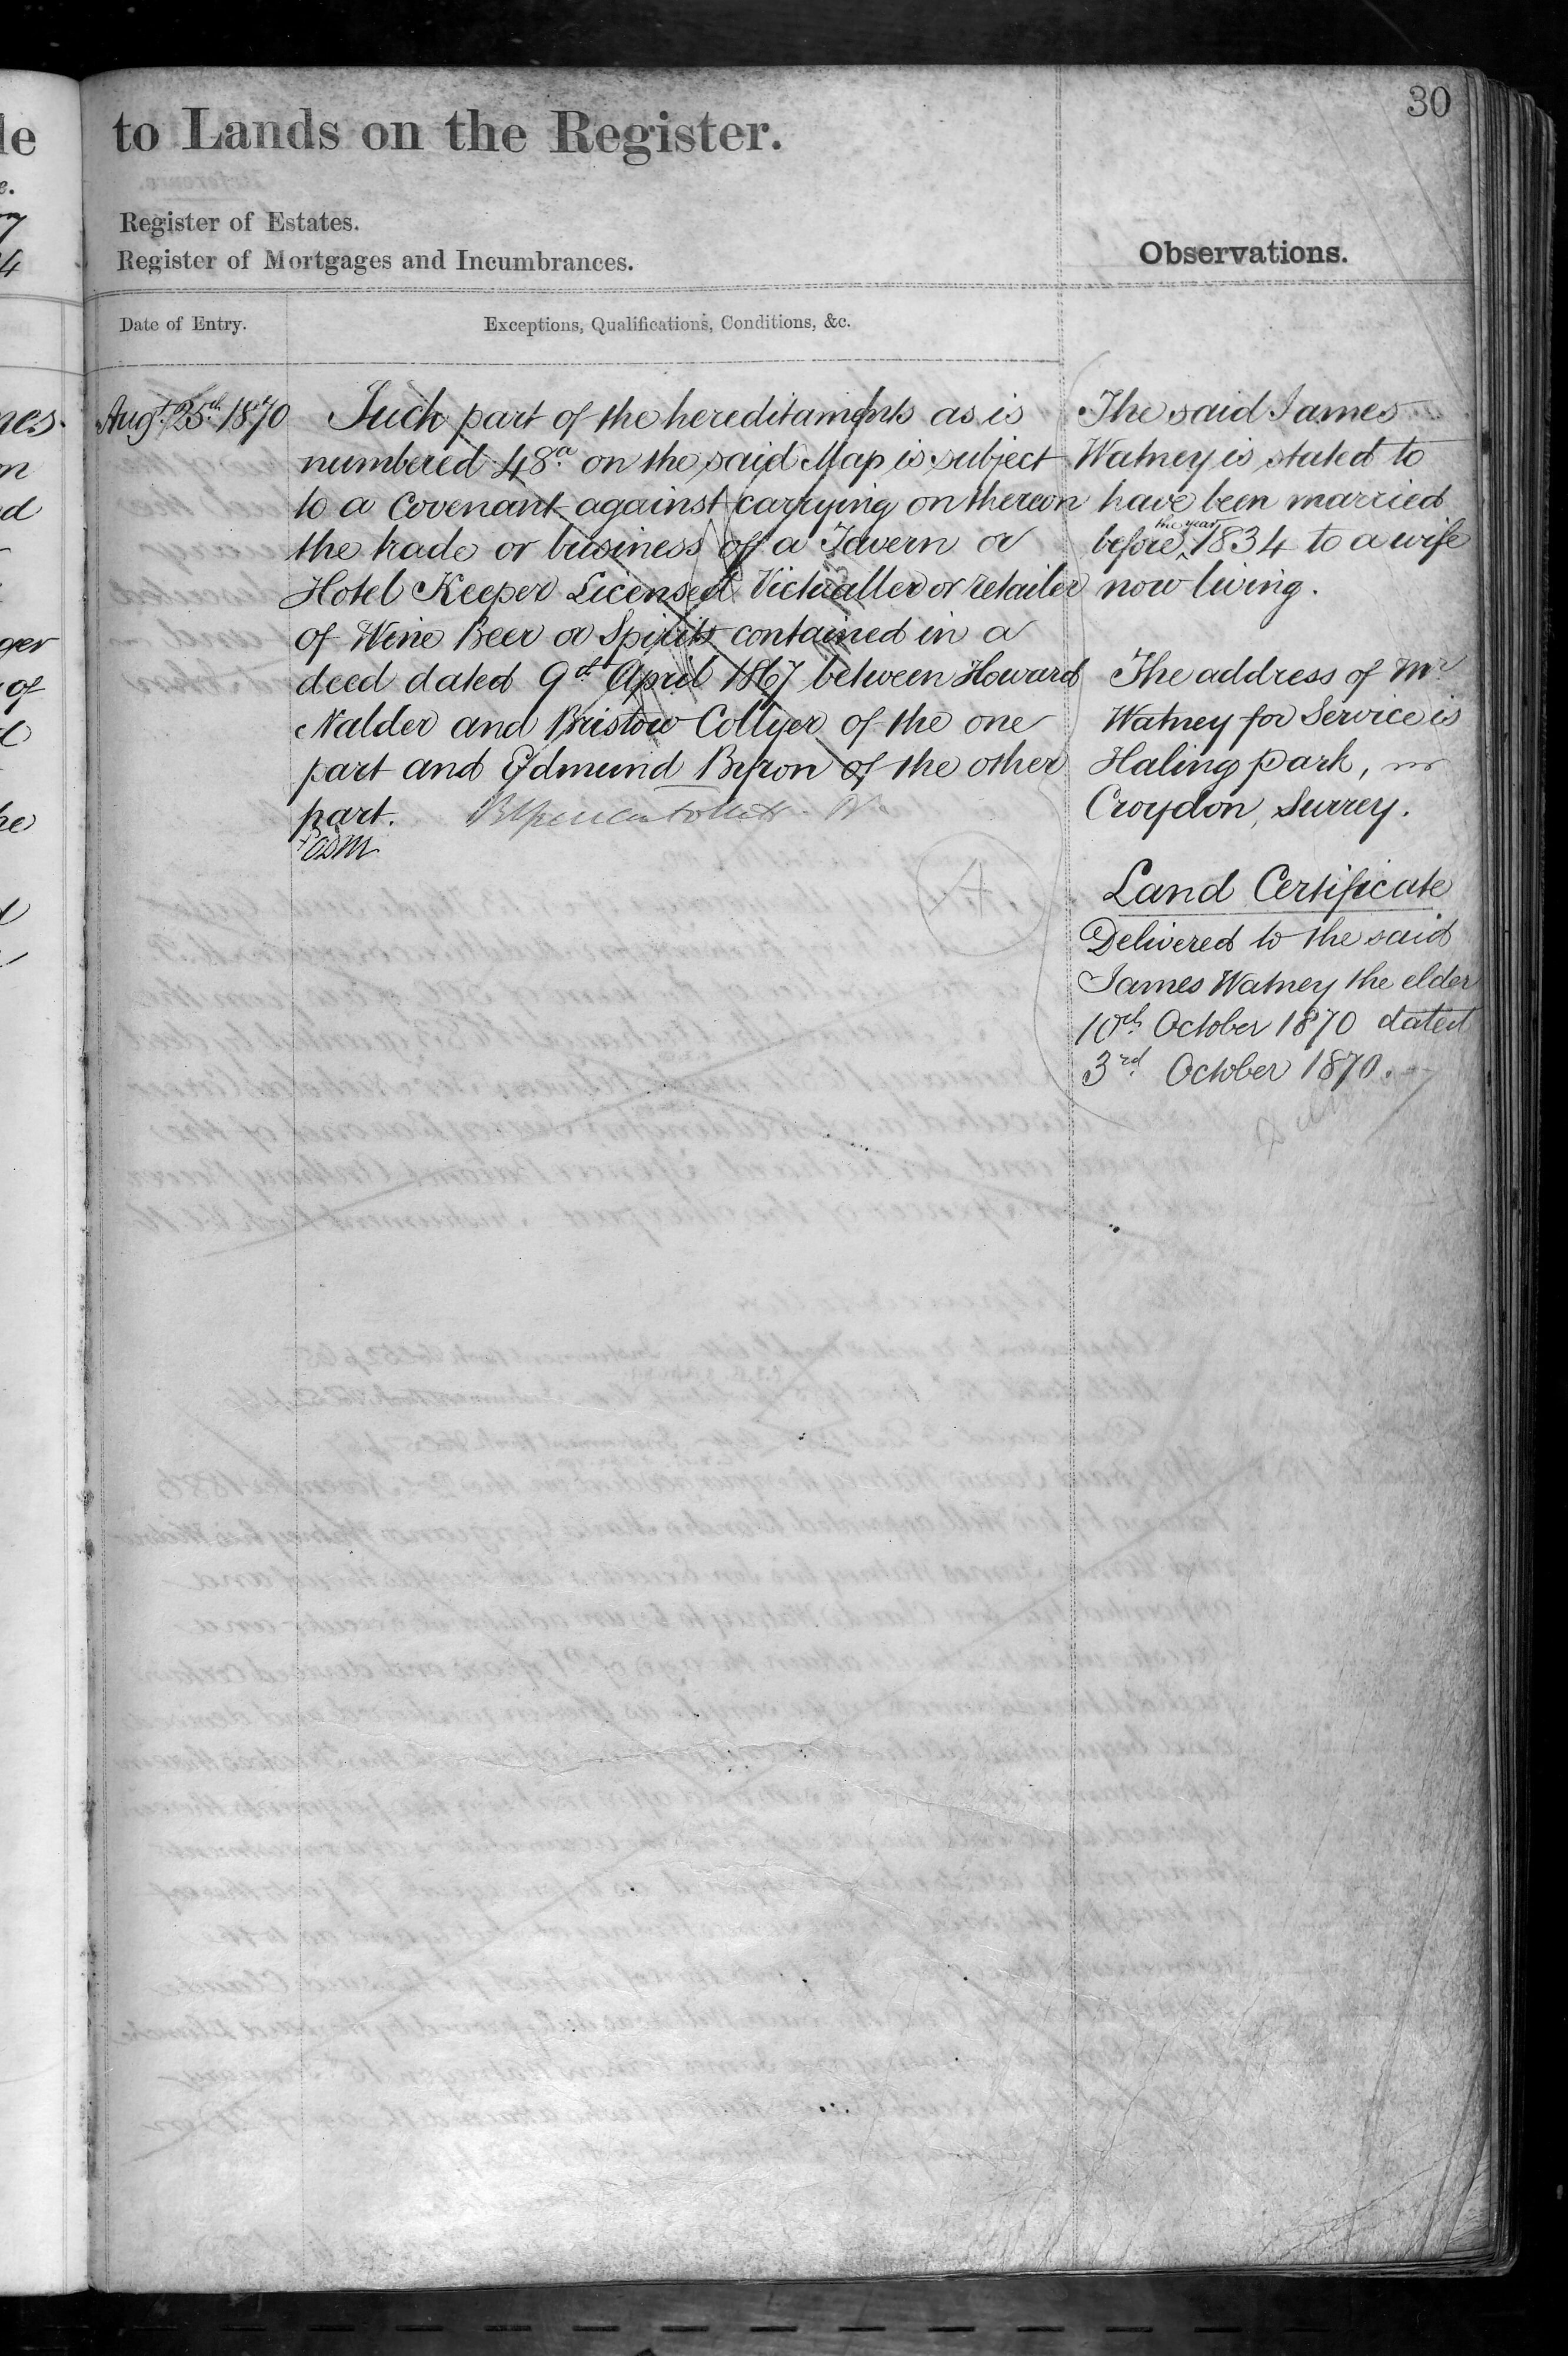 30
to Lands on the Register.
Register of Estates.
Register of Mortgages and Incumbrances.
Observations.
Date of Entry.
Exceptions, Qualifications, Conditions, &c.
Augt. 25th. 1870
Such part of the hereditaments as is
numbered 48a on the said Map is subject
to a Covenant against carrying on thereon
the trade or business of a Tavern or
Hotel Keeper Licensed Victualler or retailer
of Wine Beer or Spirits contained in a
deed dated 9th April 1867 between Howard
Nalder and Bristow Collyer of the one
part and Edmund Byron of the other
part.
The said James
Watney is stated to
have been married
before the year 1834 to a wife
now living.
The address of Mr.
Watney for Service is
Haling park, nr
Croydon, Surrey.
Land Certificate
Delivered to the said
James Watney the elder
10th October 1870 dated
3rd October 1870.
A